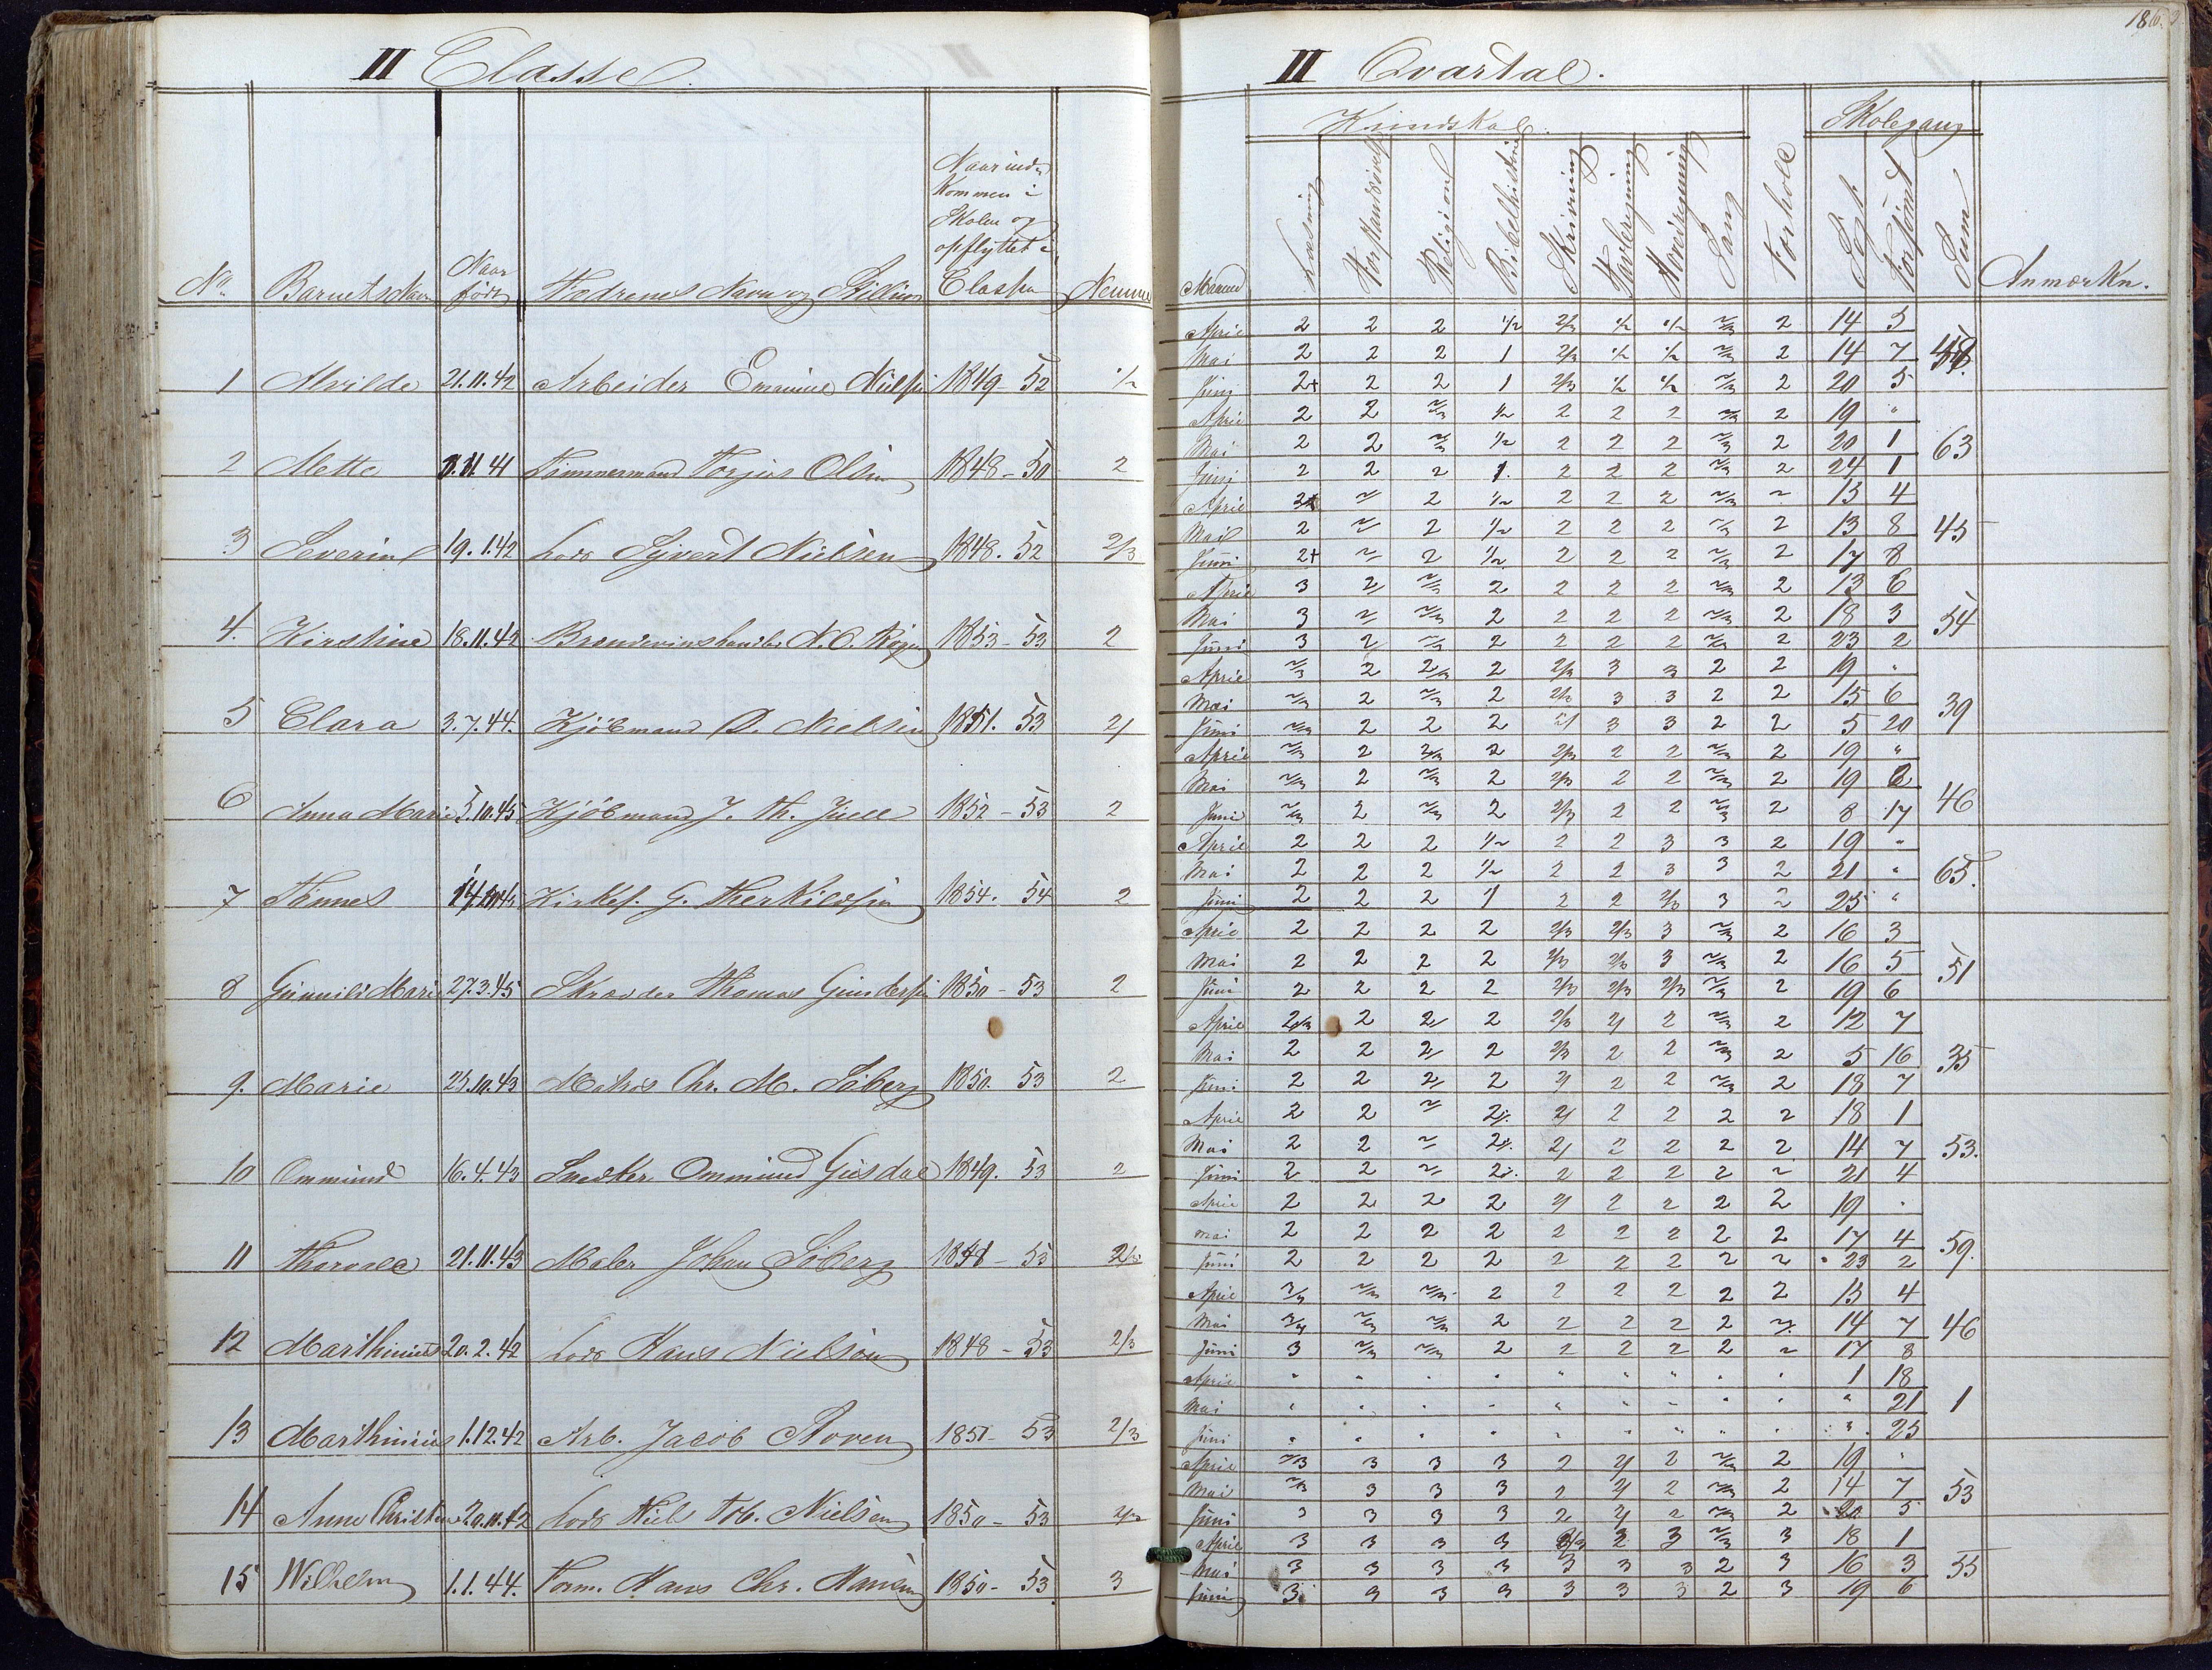 II Classe.
No. Barnets Navn Naar født Fædrenes Navn og Stilling Naar ind- kommen i Skolen og opflyttet i Classen Nemme
1 Alvilde 21.11.42 Arbeider Nielsen 1849 - 52 1/2
2 Mette 11.41 Tømmermand Torjus Olsen 1848 - 50 2
3 Severine 19.1.42 Lods Syvert Nielsen 1848. 52 2/3
4. Kirstine 18.11.42 N. O. 1853 - 53 2
5 Clara 3.7.44. Kjøbmand O. Nielsen 1851. 53 2/
6 Anna Marie 5.10.45 Kjøbmand J. Th. Juell 1852 - 53 2
7 Tønnes Kirkes. G. Therkildsen 1854. 54 2
8 Gunnild Marie 27.3.45 Skræder Thomas Gundersen 1850 - 53 2
9. Marie 25.10.43 Matros Chr. M. Søberg 1850 53 2
10 Ommund 16.4.43 Snedker Ommund Gusdal 1849. 53 2
11 21.11.43 Maler Johan Søberg 53 2/3
12 Marthinius 20.2.42 Lods Hans Nielsen 1848 - 53 2/3
13 Marthinius 1.12.42 Arb. Jacob Stoven 1851 - 53 2/3
14 Anne Christine 20.11.42 Lods Niels Tob. Nielsen 1850 - 53 2/3
15 Wilhelm 1.1.44. Tøm. Hans Chr. Hansen 1850 - 53 3
II Qvartal.
Kundskab. Skolegang
Maaned Læsning Forstandsøvelse Religion Bibelhistorie Skrivning Tavleregning Hovedregning Sang Forhold Søgt. Forsømt Sum Anmærkn.
April 2 2 2 1/2 2/3 1/2 1/2 2/3 2 14 5
Mai 2 2 2 1 2/3 1/2 1/2 2/3 2 14 7
Juni 2+ 2 2 1 2/3 1/2 1/2 2/3 2 20 5
April 2 2 2/3 1/2 2 2 2 2/3 2 19 "
Mai 2 2 2/3 1/2 2 2 2 2/3 2 20 1 63
Juni 2 2 2 1. 2 2 2 2/3 2 24 1
April 2 2 1/2 2 2 2 2/3 2 15 4
Mai 2 2 2 1/2 2 2 2 2/3 2 13 8 45
Juni 2+ 2 2 1/2 2 2 2 2/3 2 17 8
April 3 2 2/3 2 2 2 2 2/3 2 13 6
Mai 3 2 2/3 2 2 2 2 2/3 2 18 3 54
Juni 3 2 2/3 2 2 2 2 2/3 2 23 2
April 2/3 2 2/3 2 2/3 3 3 2 2 19 "
Mai 2/3 2 2/3 2 2/3 3 3 2 2 15 6 39
Juni 2/3 2 2 2 2/ 3 3 2 2 5 20
April 2/3 2 2/3 2 2/3 2 2 2/3 2 19 "
Mai 2/3 2 2/3 2 2/3 2 2 2/3 2 19 2 46
Juni 2/3 2 2/3 2 2/3 2 2 2/3 2 8 17
April 2 2 2 1/2 2 2 3 3 2 19 "
Mai 2 2 2 1/2 2 2 3 3 2 21 " 65.
Juni 2 2 2 1 2 2 2/3 3 2 25 "
April 2 2 2 2 2/3 2/3 3 2/3 2 16 3
Mai 2 2 2 2 2/3 2/3 3 2/3 2 16 5 51
Juni 2 2 2 2 2/3 2/3 2/3 2/3 2 19 6
April 2/3 2 2/ 2 2/3 2/ 2 2/3 2 12 7
Mai 2 2 2/ 2 2/3 2 2 2/3 2 5 16 35
Juni 2 2 2/ 2 2/ 2 2 2/3 2 18 7
April 2 2 2 2/. 2/ 2 2 2 2 18 1
Mai 2 2 2 2/. 2/ 2 2 2 2 14 7 53.
Juni 2 2 2 2/. 2 2 2 2 2 21 4
April 2 2 2 2 2/ 2 2 2 2 19 "
Mai 2 2 2 2 2 2 2 2 2 17 4 59.
Juni 2 2 2 2 2 2 2 2 2 23 2
April 3/4 2/3 2/3 2 2 2 2 2 2 15 4
Mai 3/4 2/3 2/3 2 2 2 2 2 2 14 7 46
Juni 3 2/3 2/3 2 2 2 2 2 2 17 8
April " " " " " " " " " 1 18
Mai " " " " " " " " " " 21 1
Juni " " " " " " " " " " 25
April 2/3 3 3 3 2 2/ 2 2/3 2 19 "
Mai 2/3 3 3 3 2 2/ 2 2/3 2 14 7 53
Juni 3 3 3 3 2 2/ 2 2/3 2 20 5
April 3 3 3 3 2/3 3 3 2/3 3 18 1
Mai 3 3 3 3 3 3 3 2 3 16 3 55
Juni 3 3 3 3 3 3 3 2 3 19 6